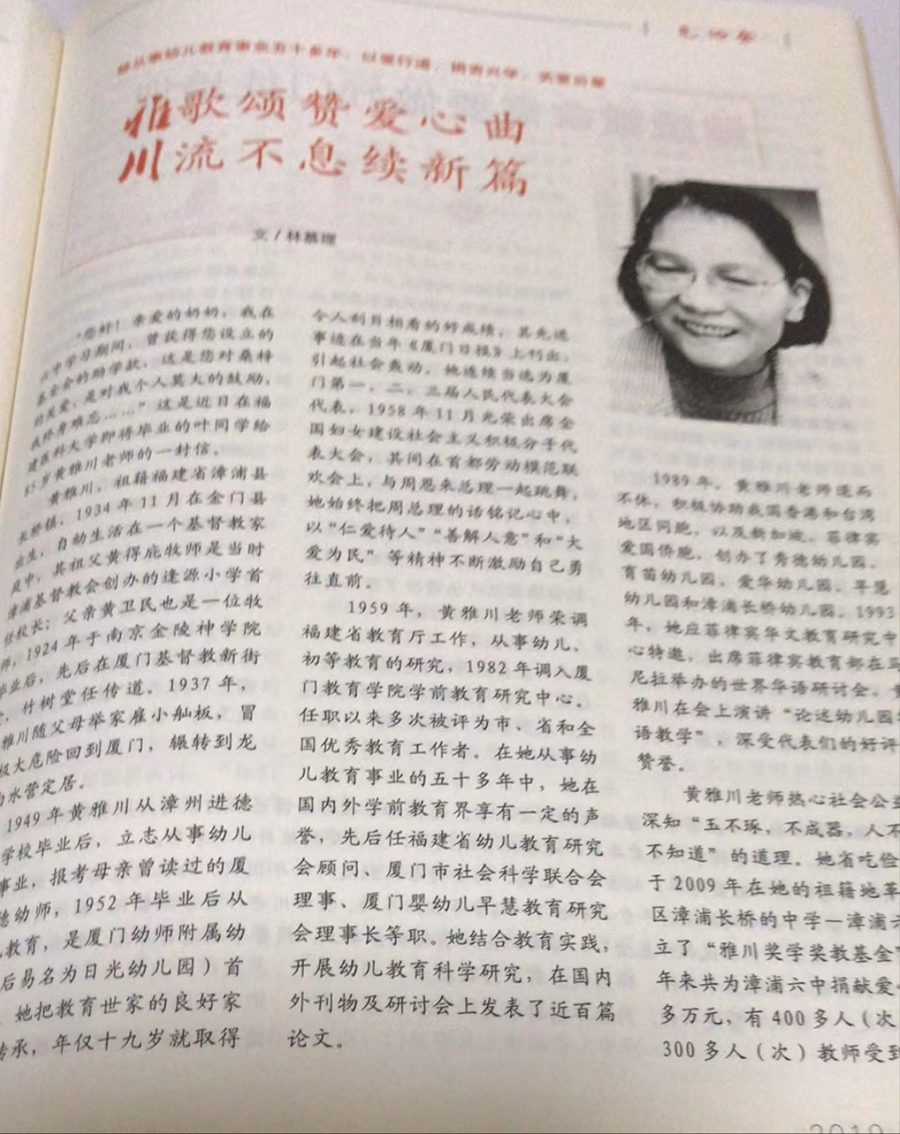 雅歌颂赞爱心曲
川流不息续新篇
文/林慕理
“您好！亲爱的奶奶，我在
六中学习期间，曾获得您设立的
基金会的助学款，这是您对桑梓
的关爱，是对我个人莫大的鼓励，
我终身难忘……”这是近日在福
建医科大学即将毕业的叶同学给
85岁黄雅川老师的一封信。
黄雅川，祖籍福建省漳浦县
长桥镇，1934年11月在金门县
出生，自幼生活在一个基督教家
庭中，其祖父黄得庇牧师是当时
漳浦基督教会创办的逢源小学首
任校长；父亲黄卫民也是一位牧
师，1924年于南京金陵神学院
毕业后，先后在厦门基督教新街
堂、竹树堂任传道。1937年，
雅川随父母举家雇小舢板，冒
极大危险回到厦门，辗转到龙
水营定居。
1949年黄雅川从漳州进德
学校毕业后，立志从事幼儿
事业，报考母亲曾读过的厦
德幼师，1952年毕业后从
教育，是厦门幼师附属幼
后易名为日光幼儿园）首
她把教育世家的良好家
传承，年仅十九岁就取得
令人刮目相看的好成绩，其先进
事迹在当年《厦门日报》上刊出，
引起社会轰动。她连续当选为厦
门第一、二、三届人民代表大会
代表，1958年11月光荣出席全
国妇女建设社会主义积极分子代
表大会，其间在首都劳动模范联
欢会上，与周恩来总理一起跳舞，
她始终把周总理的话铭记心中，
以“仁爱待人”“善解人意”和“大
爱为民”等精神不断激励自己勇
往直前。
1959年，黄雅川老师荣调
福建省教育厅工作，从事幼儿、
初等教育的研究，1982年调入厦
门教育学院学前教育研究中心。
任职以来多次被评为市、省和全
国优秀教育工作者。在她从事幼
儿教育事业的五十多年中，她在
国内外学前教育界享有一定的声
誉，先后任福建省幼儿教育研究
会顾问、厦门市社会科学联合会
理事、厦门婴幼儿早慧教育研究
会理事长等职。她结合教育实践，
开展幼儿教育科学研究，在国内
外刊物及研讨会上发表了近百篇
论文。
1989年，黄雅川老师退而
不休，积极协助我国香港和台湾
地区同胞，以及新加坡、菲律宾
爱国侨胞，创办了秀德幼儿园、
育苗幼儿园、爱华幼儿园、早慧
幼儿园和漳浦长桥幼儿园。1993
年，她应菲律宾华文教育研究中
心特邀，出席菲律宾教育部在马
尼拉举办的世界华语研讨会。黄
雅川在会上演讲“论述幼儿园华
语教学”，深受代表们的好评
赞誉。
黄雅川老师热心社会公益
深知“玉不琢，不成器，人不
不知道”的道理。她省吃俭
于2009年在她的祖籍地革
区漳浦长桥的中学—漳浦六
立了“雅川奖学奖教基金”
年来共为漳浦六中捐献爱
多万元，有400多人（次
300多人（次）教师受到
2019